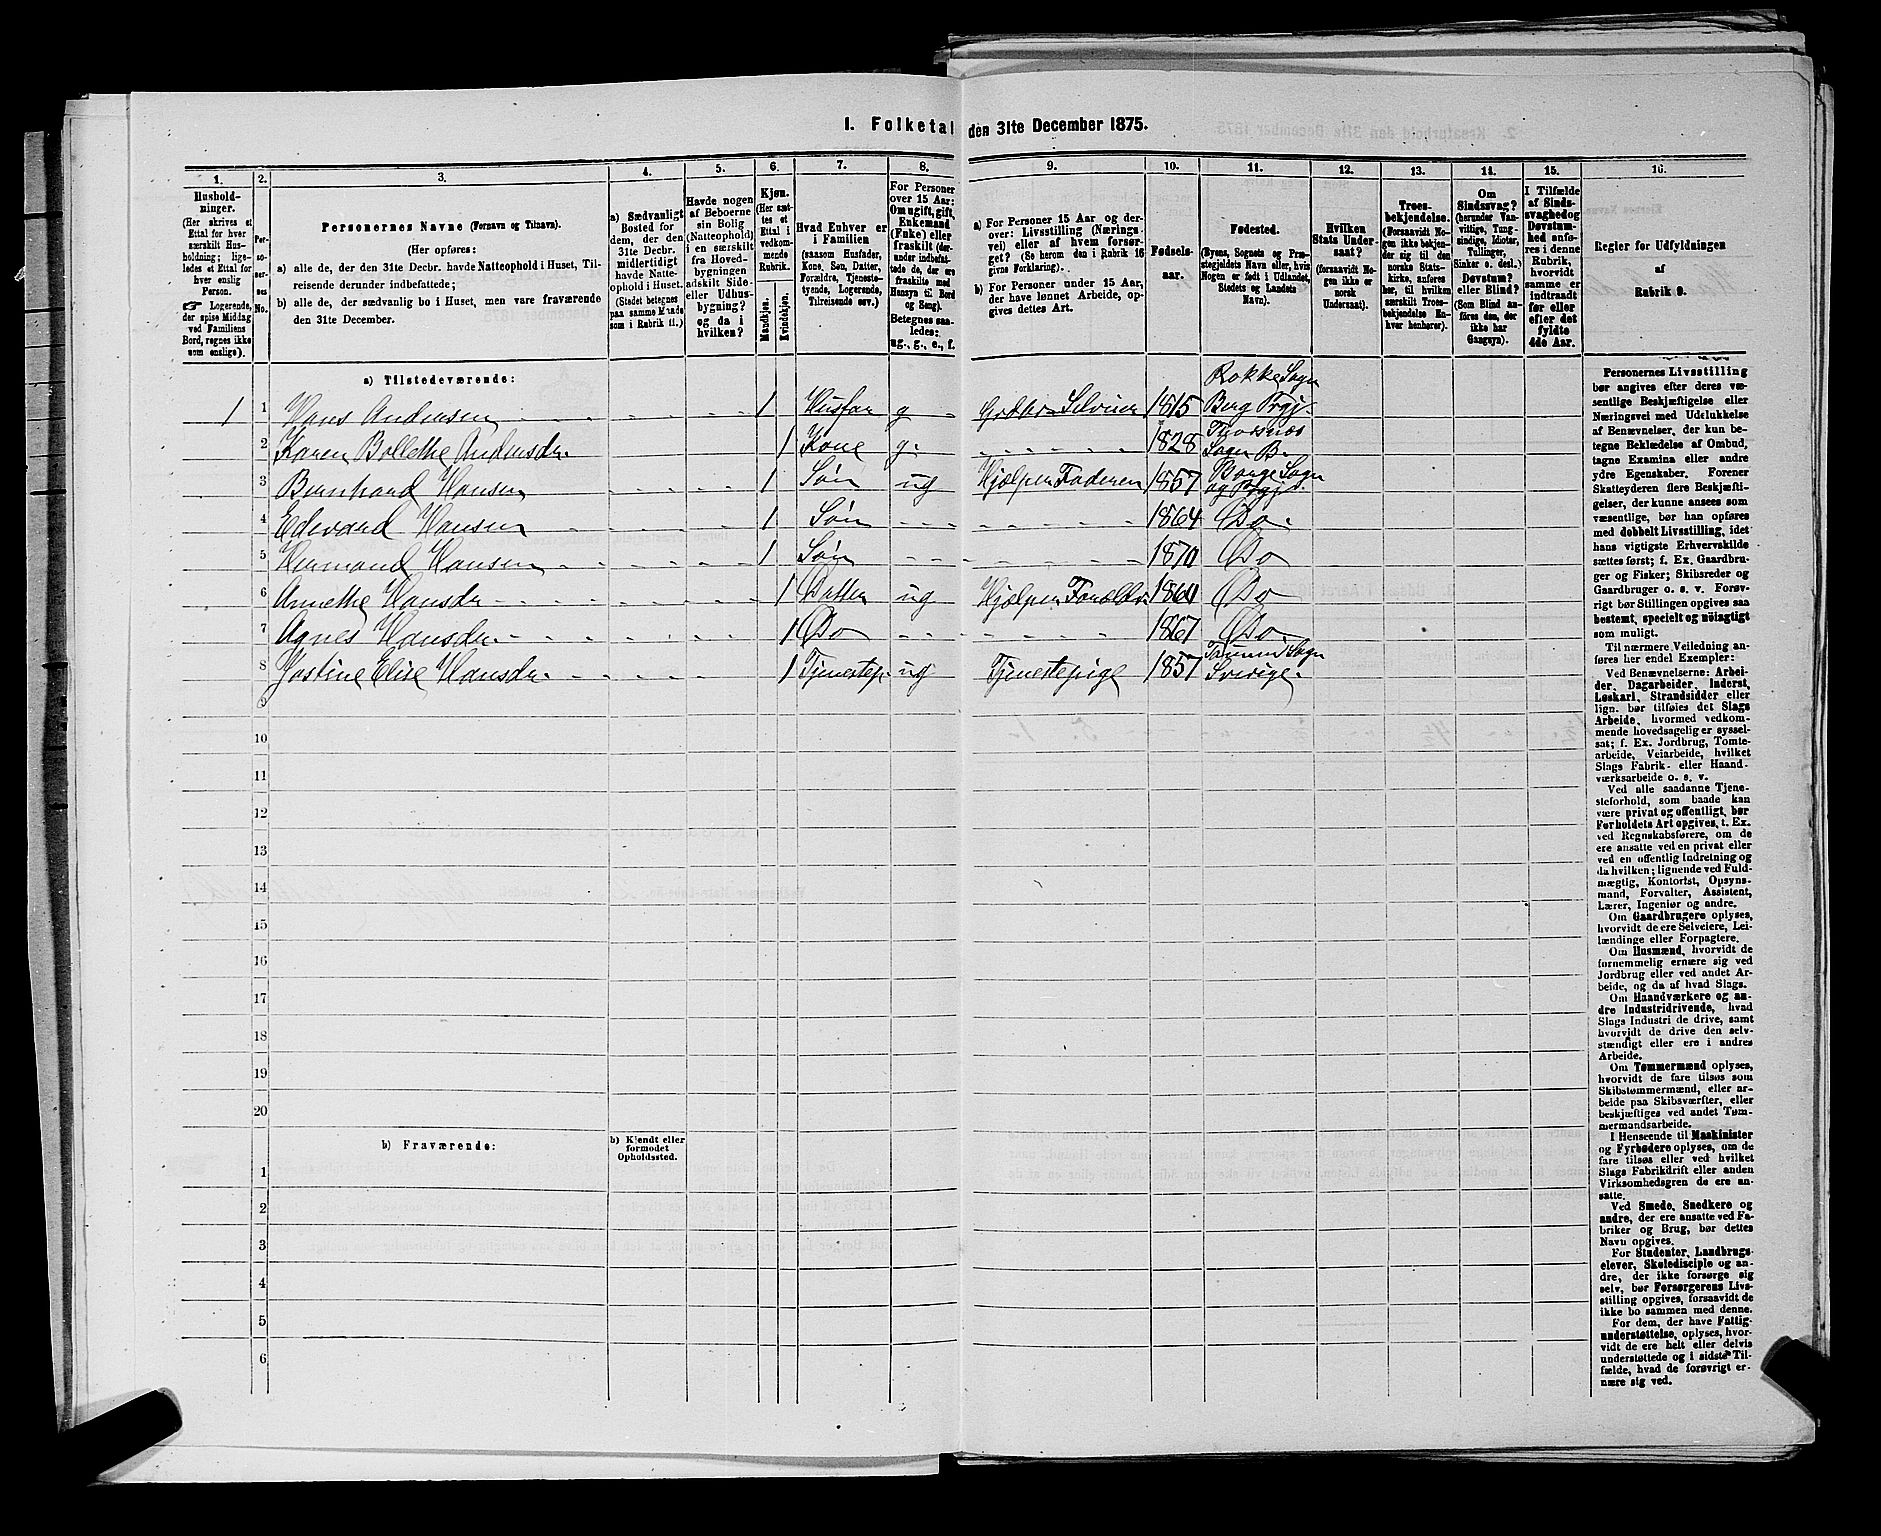 1. Folketal den 31te December 1875.
1. 2. 3. 4. 5. 6. 7. 8. 9. 10. 11. 12. 13. 14. 15. 16.
Hushold-
ninger.
(Her skrives et
Ettal for hver
særskilt Hus-
holdning; lige-
ledes et Ettal for
hver enslig
Person.
☞ Logerende,
der spise Middag
ved Familiens
Bord, regnes ikke
som enslige).
Per-
so-
ner-
nes
No.
Personernes Navne (Fornavn og Tilnavn).
(Her opføres:
a) alle de, der den 31te Decbr. havde Natteophold i Huset, Til-
reisende derunder indbefattede;
b) alle de, der sædvanlig bo i Huset, men vare fraværende
den 31te December.
a) Sædvanligt
Bosted for
dem, der den
31te Decbr.
midlertidigt
havde Natte-
ophold i Huset.
(Stedet betegnes
paa samme Maade
som i Rubrik 11.)
Havde nogen
af Beboerne
sin Bolig
(Natteophold)
i en særskilt
fra Hoved-
bygningen
adskilt Side-
eller Udhus-
bygning?
og da i
hvilken?
Kjøn.
(Her sæt-
tes et
Ettal i
vedkom-
mende
Rubrik.
Mandkjøn.
Kvindekjøn.
Hvad Enhver er
i Familien
(saasom Husfader,
Kone, Søn, Datter,
Forældre, Tjeneste-
tyende, Logerende,
Tilreisende osv.)
For Personer
over 15 Aar:
Om ugift, gift,
Enkemand
(Enke) eller
fraskilt (der-
under indbefat-
tede de, der ere
fraskilte med
Hensyn til Bord
og Seng).
Betegnes saa-
ledes:
ug., g., e., f.
a) For Personer 15 Aar og der-
over: Livsstilling (Nærings-
vei) eller af hvem forsør-
get? (Se herom den i Rubrik 16
givne Forklaring).
b) For Personer under 15 Aar,
der have lønnet Arbeide, op-
gives dettes Art.
Fødsels-
aar.
Fødested.
(Byens, Sognets og Præ-
stegjeldets Navn eller, hvis
Nogen er født i Udlandet,
Stedets og Landets
Navn).
Hvilken
Stats Under-
saat?
(forsaavidt No-
gen ikke er
norsk
Undersaat).
Troes-
bekjendelse.
(Forsaavidt No-
gen ikke bekjen-
der sig til den
norske Stats-
kirke, anføres
her, til hvilken
særskilt Troes-
bekjendelse En-
hver henhører).
Om
Sindssvag?
(herunder Van-
vittige, Tung-
sindige, Idioter,
Tullinger,
Sinker o. desl.)
Døvstum?
eller Blind?
(Som Blind an-
føres den, der
ikke har
Gangsyn).
I Tilfælde
af Sinds-
svaghed og
Døvstum-
hed anfø-
res i denne
Rubrik,
hvorvidt
samme er
indtraadt
før eller
efter det
fyldte
4de Aar.
Regler for Udfyldningen
af
Rubrik 9.
a) Tilstedeværende:
1 1 Hans Andersen 1 Husfar g Selveier 1815 Rokke Sogn Berg Prgj.
2 Karen Bollethe Andersdr. 1 Kone g. 1828 Thorsnæs Sogn B.
3 Bernhard Hansen 1 Søn ug Hjælper Faderen 1857 Borge Sogn og Prgj.
4 Edevard Hansen 1 Søn 1864 Do.
5 Hermand Hansen 1 Søn 1870 Do
6 Annethe Hansdr 1 Datter ug Hjælper 1860 Do
7 Agnes Hansdr. 1 Do 1867 Do
8 Jostine Elise Hansdr. 1 Tjenestep. ug Tjenestepige 1857 Sogn Sverige.
9
10
11
12
13
14
15
16
17
18
19
20
b) Fraværende:
b) Kjendt eller
formodet
Opholdssted.
1
2
3
4
5
6
Personernes Livsstilling
bør angives efter deres væ-
sentlige Beskjæftigelse eller
Næringsvei med Udelukkelse
af Benævnelser, der kun be-
tegne Beklædelse af Ombud,
tagne Examina eller andre
ydre Egenskaber. Forener
Skatteyderen flere Beskjæfti-
gelser, der kunne ansees som
væsentlige, bør han opføres
med dobbelt Livsstilling, idet
hans vigtigste Erhvervskilde
sættes først; f. Ex. Gaardbru-
ger og Fisker; Skibsreder og
Gaardbruger o. s. v. Forøv-
rigt bør Stillingen opgives saa
bestemt, specielt og nöiagtigt
som muligt.
Til nærmere Veiledning an-
føres her endel Exempler:
Ved Benævnelserne: Arbei-
der, Dagarbeider, Inderst,
Løskarl, Strandsidder eller
lign. bør tilføies det Slags
Arbeide, hvormed vedkom-
mende hovedsagelig er syssel-
sat; f. Ex. Jordbrug, Tomte-
arbeide, Veiarbeide, hvilket
Slags Fabrik- eller Haand-
værksarbeide o. s. v.
Ved alle saadanne Tjene-
steforhold, som baade kan
være privat og offentligt, bør
Forholdets Art opgives, t. Ex.
ved Regnskabsførere, om de
ere ansatte ved en privat eller
ved en offentlig Indretning og
da hvilken; lignende ved Fuld-
mægtig, Kontorist, Opsyns-
mand, Forvalter, Assistent,
Lærer, Ingeniør og andre.
Om Gaardbrugere oplyses,
hvorvidt de ere Selveiere, Lei-
lændinge eller Forpagtere.
Om Husmænd, hvorvidt de
fornemmelig ernære sig ved
Jordbrug eller ved andet Ar-
beide, og da af hvad Slags.
Om Haandværkere og an-
dre Industridrivende, hvad
Slags Industri de drive, samt
hvorvidt de drive den selv-
stændigt eller ere i andres
Arbeide.
Om Tømmermænd oplyses,
hvorvidt de fare tilsøs som
Skibstømmermænd, eller ar-
beide paa Skibsværfter, eller
beskjæftiges ved andet Tøm-
mermandsarbeide.
I Henseende til Maskinister
og Fyrbødere oplyses, om de
fare tilsøs eller ved hvilket
Slags Fabrikdrift eller anden
Virksomhedsgren de ere an-
satte.
Ved Smede, Snedkere og
andre, der ere ansatte ved Fa-
briker og Brug, bør dettes
Navn opgives.
For Studenter, Landbrugs-
elever, Skoledisciple og an-
dre, der ikke forsørge sig
selv, bør Forsørgerens Livs-
stilling opgives, forsaavidt de
ikke bo sammen med denne.
For dem, der have Fattig-
understøttelse, oplyses, hvor-
vidt de ere helt eller delvis
understøttede og i sidste Til-
fælde, hvad de forøvrigt er-
nære sig ved.